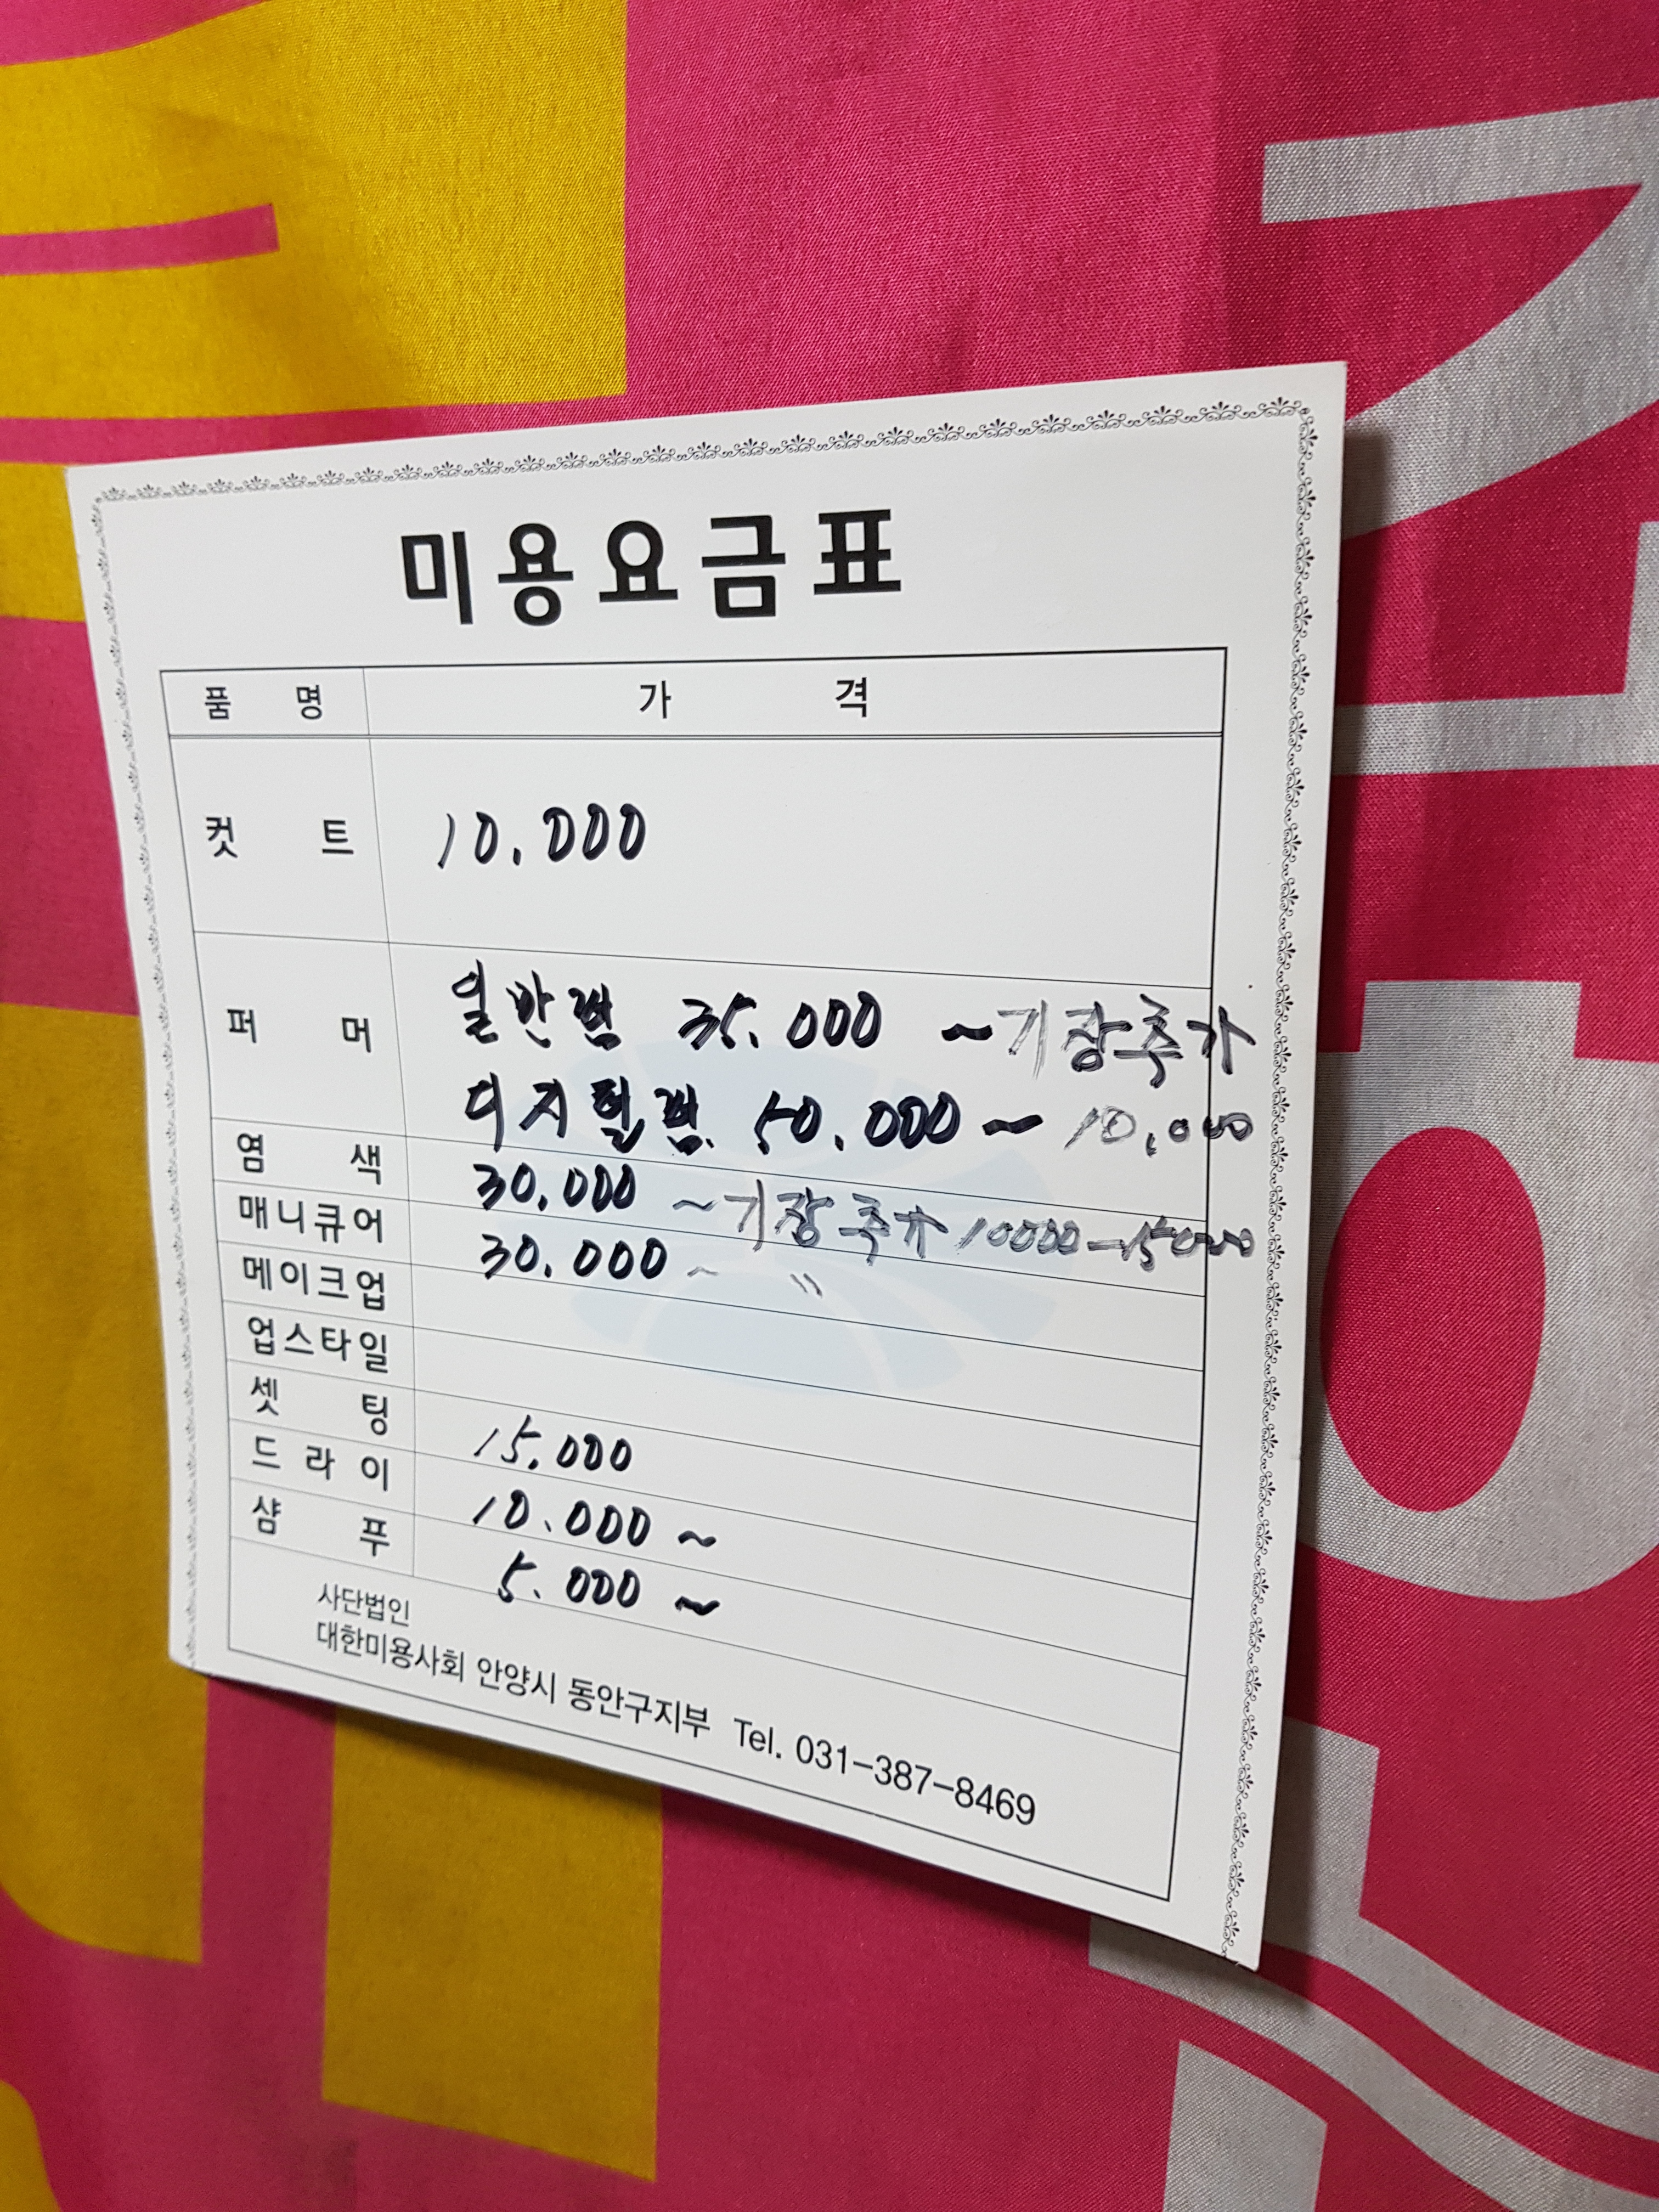 미용요금표
품명 가격
컷트 10.000
퍼머 일반펌 35.000 ~ 기장추가
디지털펌 50.000 ~ 10.000
염색 30.000 ~ 기장추가 10000-15000
매니큐어 30.000 ~ "
메이크업
업스타일
셋팅 15.000
드라이 10.000 ~
샴푸 5.000 ~
사단법인
대한미용사회 안양시 동안구지부 Tel. 031-387-8469